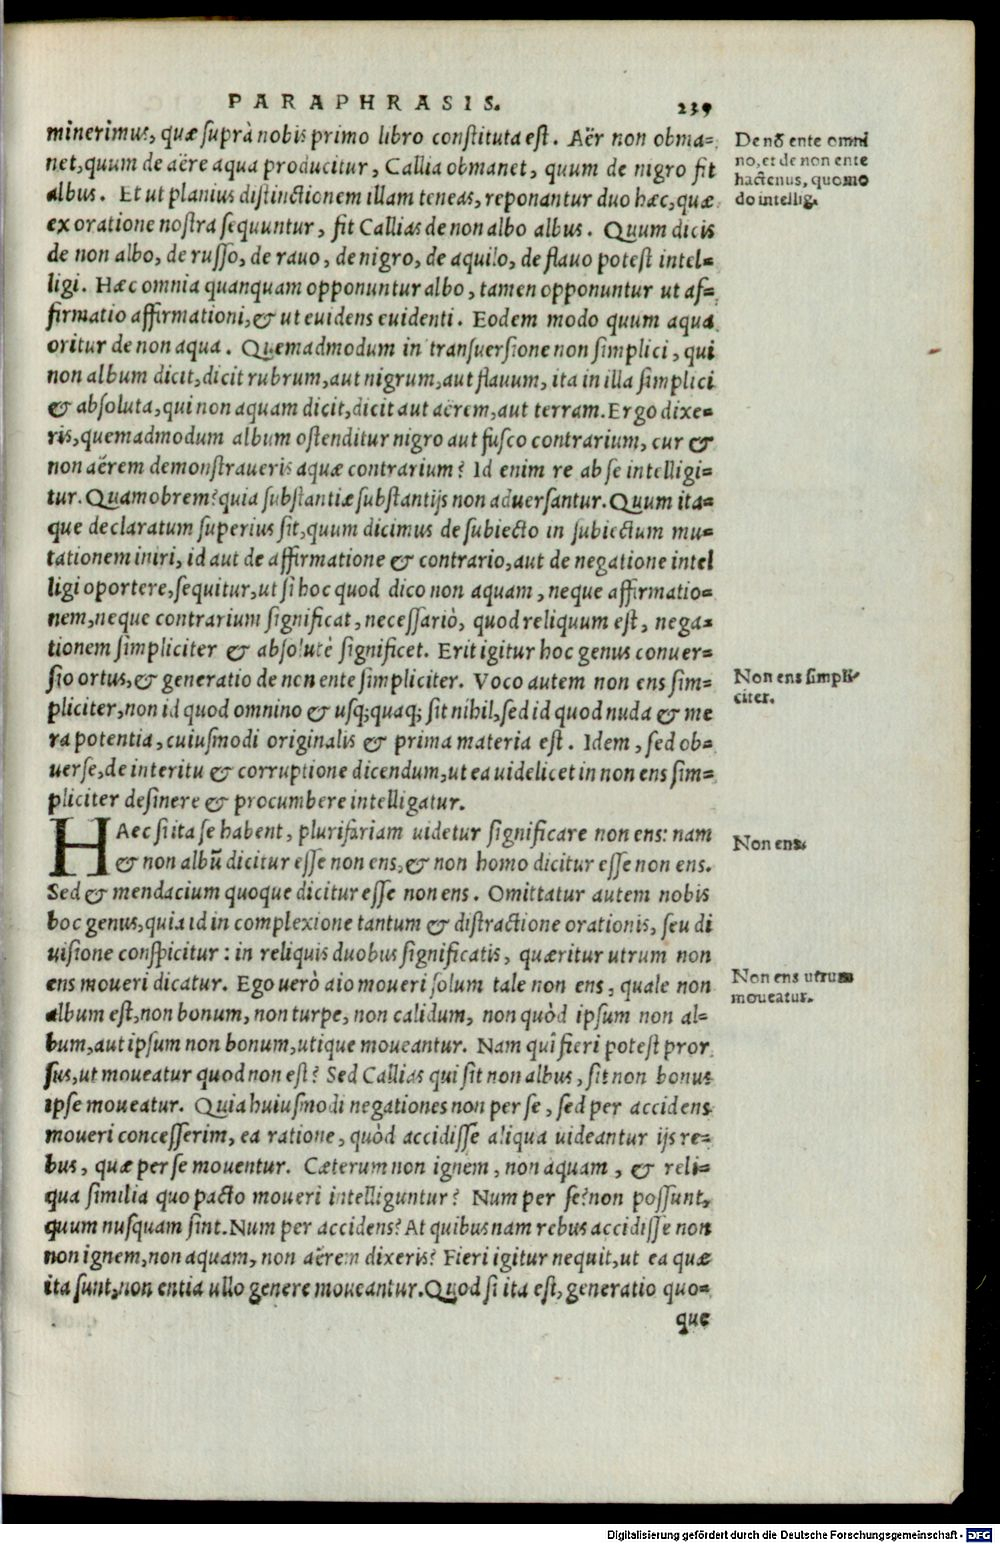 PARAPHRASIS. 239
minerimus, quæ suprà nobis primo libro constituta est. Aër non obma-
net, quum de aëre aqua producitur, Callia obmanet, quum de nigro fit
albus. Et ut planius distinctionem illam teneas, reponantur duo hæc, quæ
ex oratione nostra sequuntur, fit Callias de non albo albus. Quum dicis
de non albo, de russo, de rauo, de nigro, de aquilo, de flauo potest intel-
ligi. Hæc omnia quanquam opponuntur albo, tamen opponuntur ut af-
firmatio affirmationi, & ut euidens euidenti. Eodem modo quum aqua
oritur de non aqua. Quemadmodum in transuersione non simplici, qui
non album dicit, dicit rubrum, aut nigrum, aut flauum, ita in illa simplici
& absoluta, qui non aquam dicit, dicit aut aërem, aut terram. Ergo dixe-
ris, quemadmodum album ostenditur nigro aut fusco contrarium, cur &
non aërem demonstraueris aquæ contrarium? Id enim re ab se intelligi-
tur. Quamobrem? quia substantiæ substantijs non aduersantur. Quum ita-
que declaratum superius sit, quum dicimus de subiecto in subiectum mu-
tationem iniri, id aut de affirmatione & contrario, aut de negatione intel
ligi oportere, sequitur, ut si hoc quod dico non aquam, neque affirmatio-
nem, neque contrarium significat, necessariò, quod reliquum est, nega-
tionem simpliciter & absolutè significet. Erit igitur hoc genus conuer-
sio ortus, & generatio de non ente simpliciter. Voco autem non ens sim-
pliciter, non id quod omnino & usq; quaq; sit nihil, sed id quod nuda & me
ra potentia, cuiusmodi originalis & prima materia est. Idem, sed ob-
uerse, de interitu & corruptione dicendum, ut ea uidelicet in non ens sim-
pliciter desinere & procumbere intelligatur.
HAec si ita se habent, plurifariam uidetur significare non ens: nam
& non albũ dicitur esse non ens, & non homo dicitur esse non ens.
Sed & mendacium quoque dicitur esse non ens. Omittatur autem nobis
hoc genus, quia id in complexione tantum & distractione orationis, seu di
uisione conspicitur: in reliquis duobus significatis, quæritur utrum non
ens moueri dicatur. Ego uerò aio moueri solum tale non ens, quale non
album est, non bonum, non turpe, non calidum, non quòd ipsum non al-
bum, aut ipsum non bonum, utique moueantur. Nam quî fieri potest pror
sus, ut moueatur quod non est? Sed Callias qui sit non albus, sit non bonus
ipse moueatur. Quia huiusmodi negationes non per se, sed per accidens
moueri concesserim, ea ratione, quòd accidisse aliqua uideantur ijs re-
bus, quæ per se mouentur. Cæterum non ignem, non aquam, & reli-
qua similia quo pacto moueri intelliguntur? Num per se? non possunt,
quum nusquam sint. Num per accidens? At quibus nam rebus accidisse non
non ignem, non aquam, non aërem dixeris? Fieri igitur nequit, ut ea quæ
ita sunt, non entia ullo genere moueantur. Quod si ita est, generatio quo-
que
De nõ ente omni
no, et de non ente
hactenus, quomo
do intellig.
Non ens simpli-
citer.
Non ens.
Non ens utrum
moueatur.
Digitalisierung gefördert durch die Deutsche Forschungsgemeinschaft - DFG